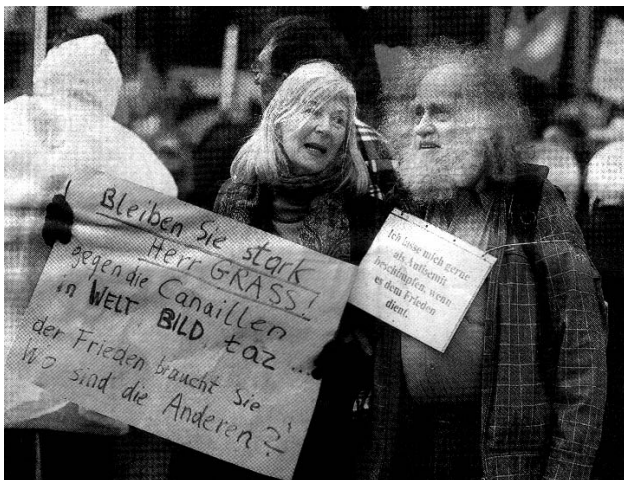 Bleiben Sie stark
Herr GRASS!
gegen die Canaillen
in WELT BILD, taz ...
der Frieden braucht Sie!
Wo sind die Anderen?
Ich lasse mich gerne
als Antisemit
beschimpfen, wenn
es dem Frieden
dient.